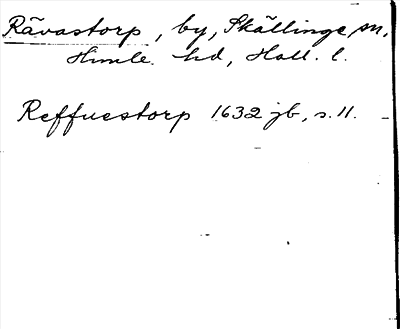 Rävastorp, by, Skällinge sn,
Himle hd, Hall. l.
Reffuestorp 1632 jb, s. 11.